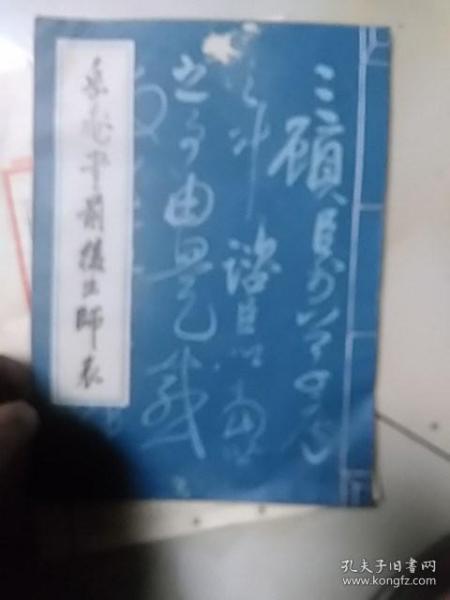 岳飞书前後出師表
三顧臣於草廬
之中諮臣以當
之事由是感
孔夫子旧书网
www.kongfz.com